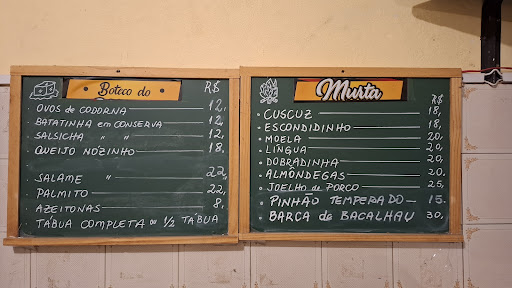 Boteco do
R$
OVOS de CODORNA 12,
BATATINHA em CONSERVA 12,
SALSICHA " " 12,
QUEIJO NOZINHO 18,
SALAME " 22,
PALMITO 22,
AZEITONAS 8,
TÁBUA COMPLETA ou 1/2 TÁBUA
Murta
R$
CUSCUZ 18,
ESCONDIDINHO 18,
MOELA 20,
LÍNGUA 20,
DOBRADINHA 20,
ALMÔNDEGAS 20,
JOELHO de PORCO 25,
PINHÃO TEMPERADO 15.
BARCA de BACALHAU 30,